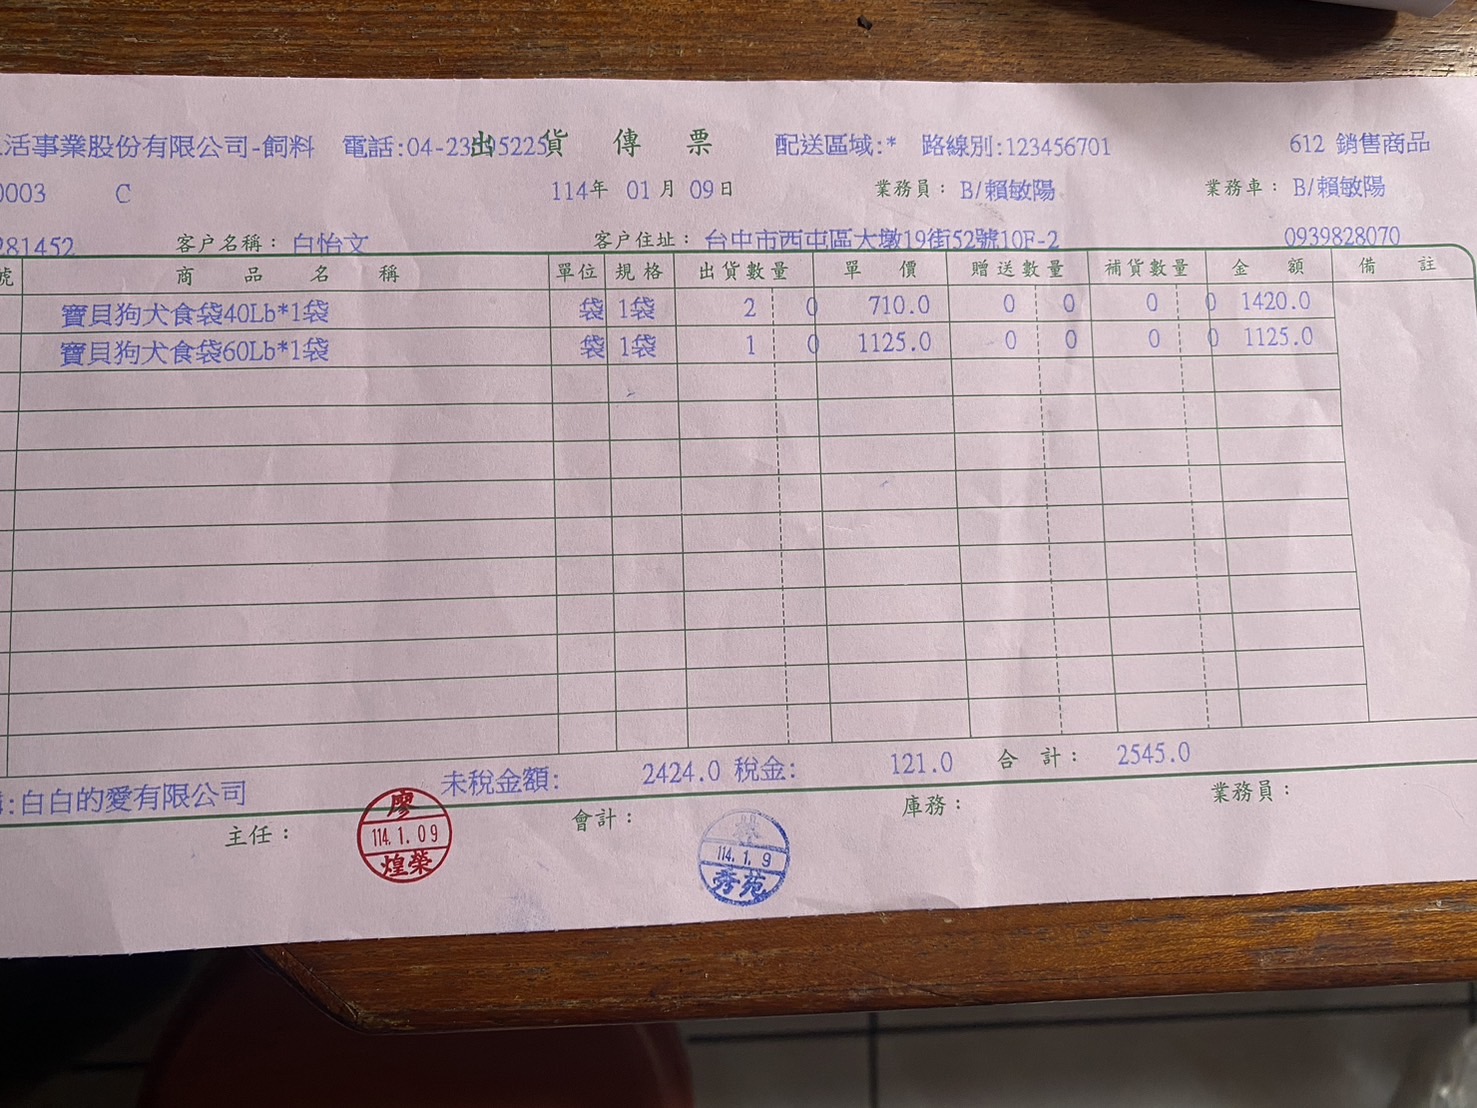 活事業股份有限公司-飼料 電話:04-23 5225 出貨傳票 配送區域:* 路線別:123456701 612 銷售商品
0003 C 114年 01月 09日 業務員：B/賴敏陽 業務車：B/賴敏陽
281452 客戶名稱：白怡文 客戶住址：台中市西屯區大墩19街52號10F-2 0939828070
號 商品名稱 單位 規格 出貨數量 單價 贈送數量 補貨數量 金額 備註
寶貝狗犬食袋40Lb*1袋 袋 1袋 2 0 710.0 0 0 0 0 1420.0
寶貝狗犬食袋60Lb*1袋 袋 1袋 1 0 1125.0 0 0 0 0 1125.0
:白白的愛有限公司 未稅金額: 2424.0 稅金: 121.0 合計： 2545.0
主任： 會計： 庫務： 業務員：
廖 114.1.09 煌榮
114.1.9 秀苑